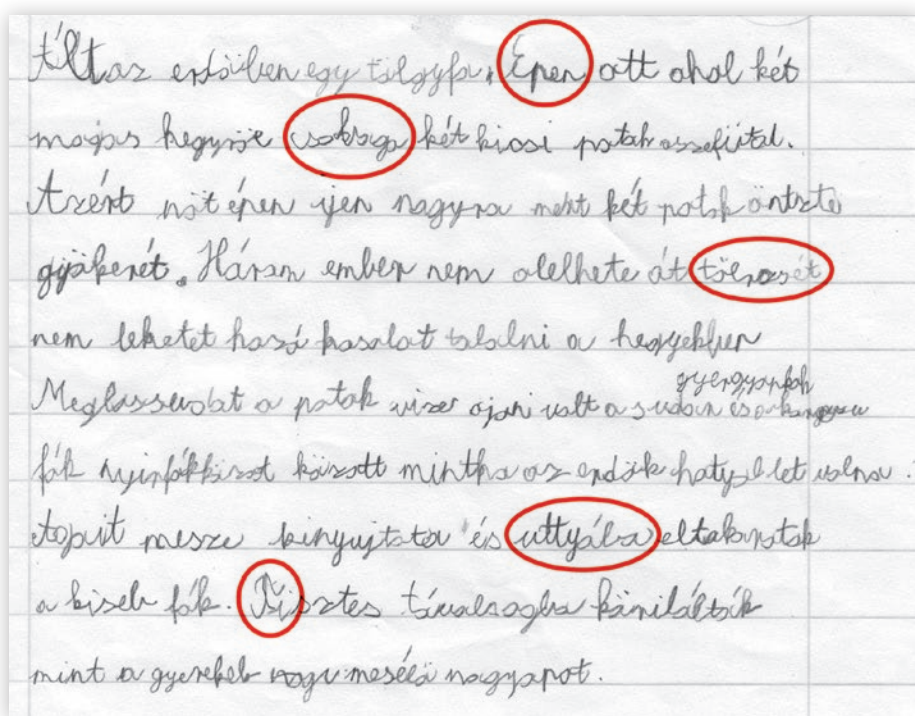 Élt az erdőben egy tölgyfa. Épen ott ahol két
magas hegynek csoksaga két kicsi patak összefutal.
Azért nőt épen ijen nagyra mert két patak öntözte
gyökerét. Három ember nem ölelhete át törzsét
nem lehetet hozá hasolot talalni a hegyekben
Meglassudot a patak vize ojan volt a suban és
gyergyánfák
fák nyirfák között mintha az erdők
topuit mesze kinyujtota és uttyába eltakartak
a kiseb fák. Tisztes távolsagba körülálták
mint a gyerekek mesélő nagyapot.